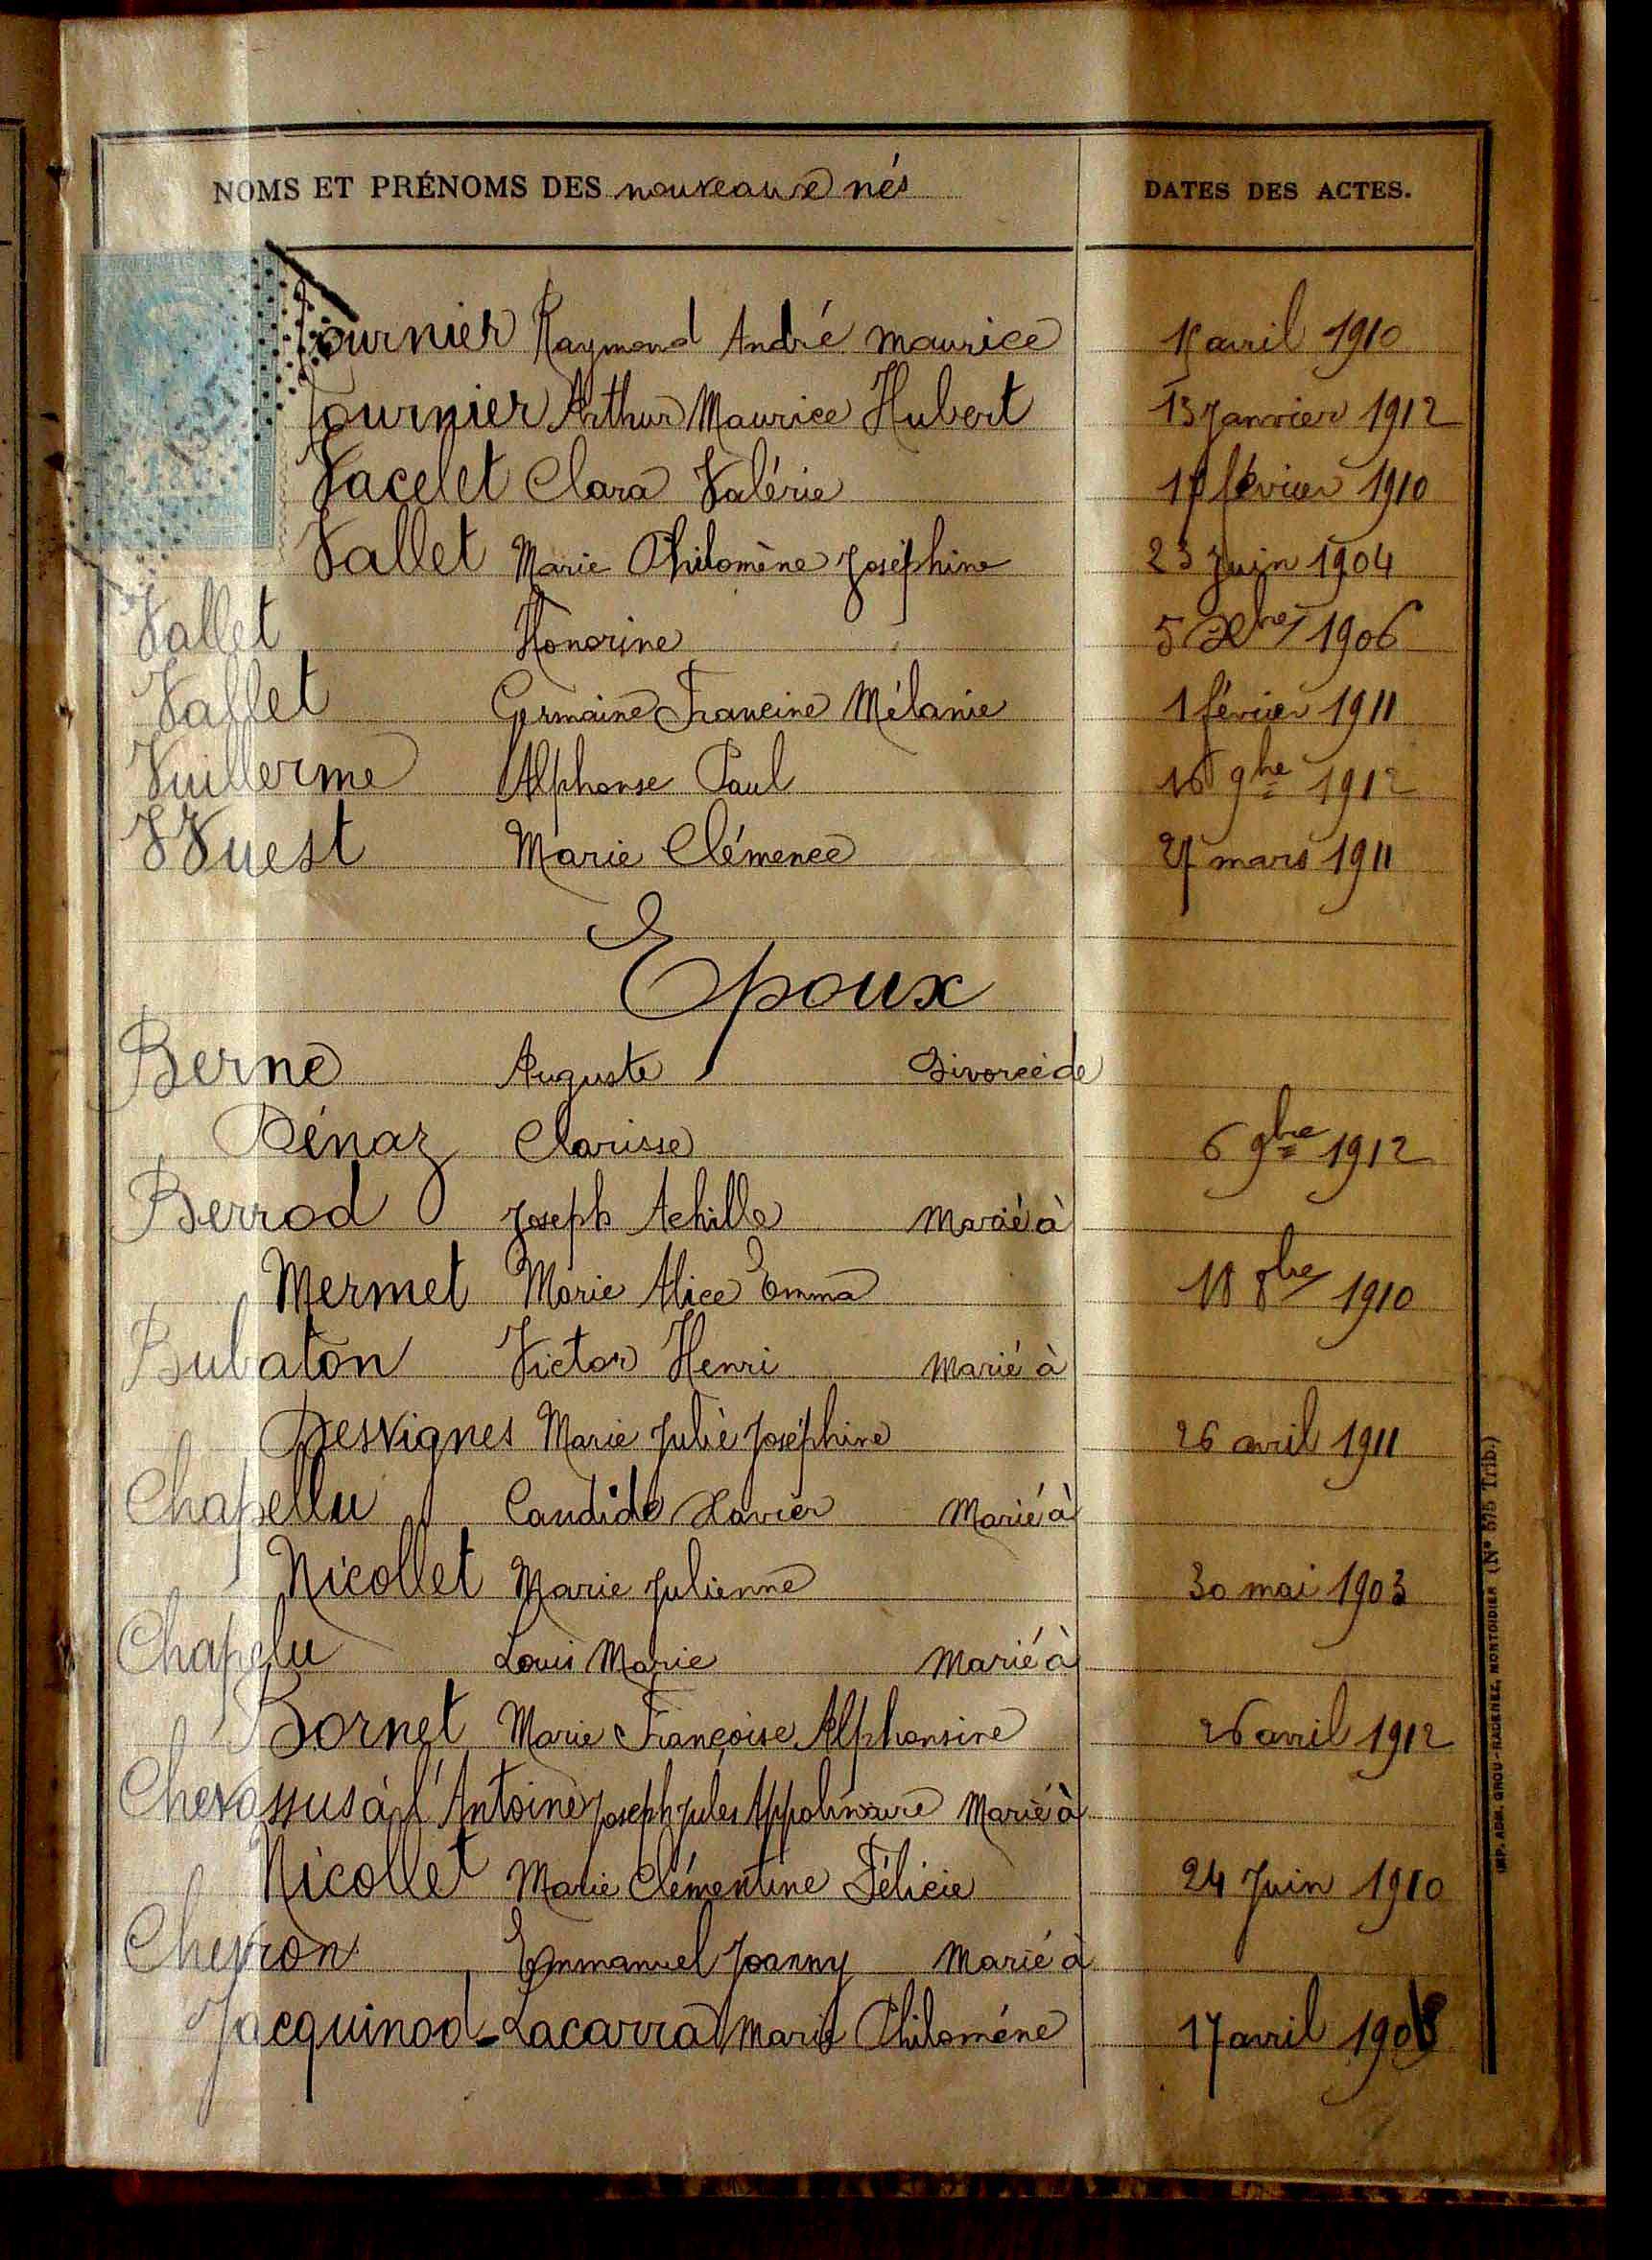 NOMS ET PRÉNOMS DES nouveaux nés DATES DES ACTES.
Tournier Raymond André Maurice avril 1910
Tournier Arthur Maurice Hubert 13 Janvier 1912
Vacelet Clara Valérie février 1910
Vallet Marie Philomène Joséphine 23 Juin 1904
Vallet Honorine 5 Xbre 1906
Vallet Germaine Francine Mélanie 1 février 1911
Vuillerme Alphonse Paul 16 9bre 1912
Wuest Marie Clémence 27 mars 1911
Epoux
Berne Auguste Divorcé de
Pénaz Clarisse 6 9bre 1912
Berrod Joseph Achille Marié à
Mermet Marie Alice Emma 18 8bre 1910
Bubaton Victor Henri Marié à
Desvignes Marie Julie Joséphine 26 avril 1911
Chapellu Candide Xavier Marié à
Nicollet Marie Julienne 30 mai 1903
Chapelu Louis Marie Marié à
Bornet Marie Françoise Alphonsine 26 avril 1912
Chevassus à l'Antoine Joseph Jules Appolinaire Marié à
Nicollet Marie Clémentine Félicie 24 Juin 1910
Chevron Emmanuel Joanny Marié à
Jacquinod-Lacarra Marie Philoméne 17 avril
IMP. ADM. GROU-RADENEZ, MONTDIDIER (N° 575 Trib.)